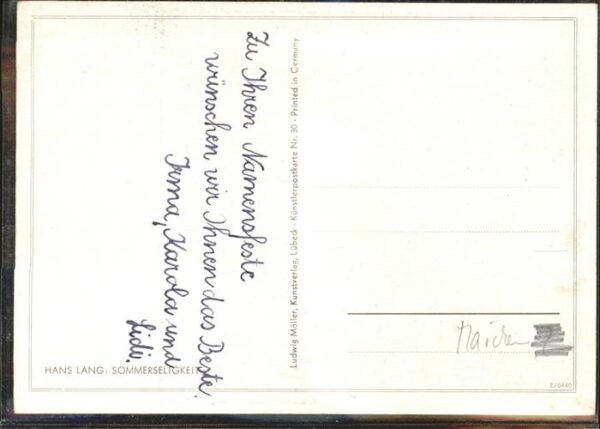 Zu Ihren Namensfeste
wünschen wir Ihnen das Beste.
Irma, Karola und
Lidi.
Ludwig Möller, Kunstverlag, Lübeck · Künstlerpostkarte Nr. 30 · Printed in Germany
HANS LANG: SOMMERSELIGKEIT
E/0440